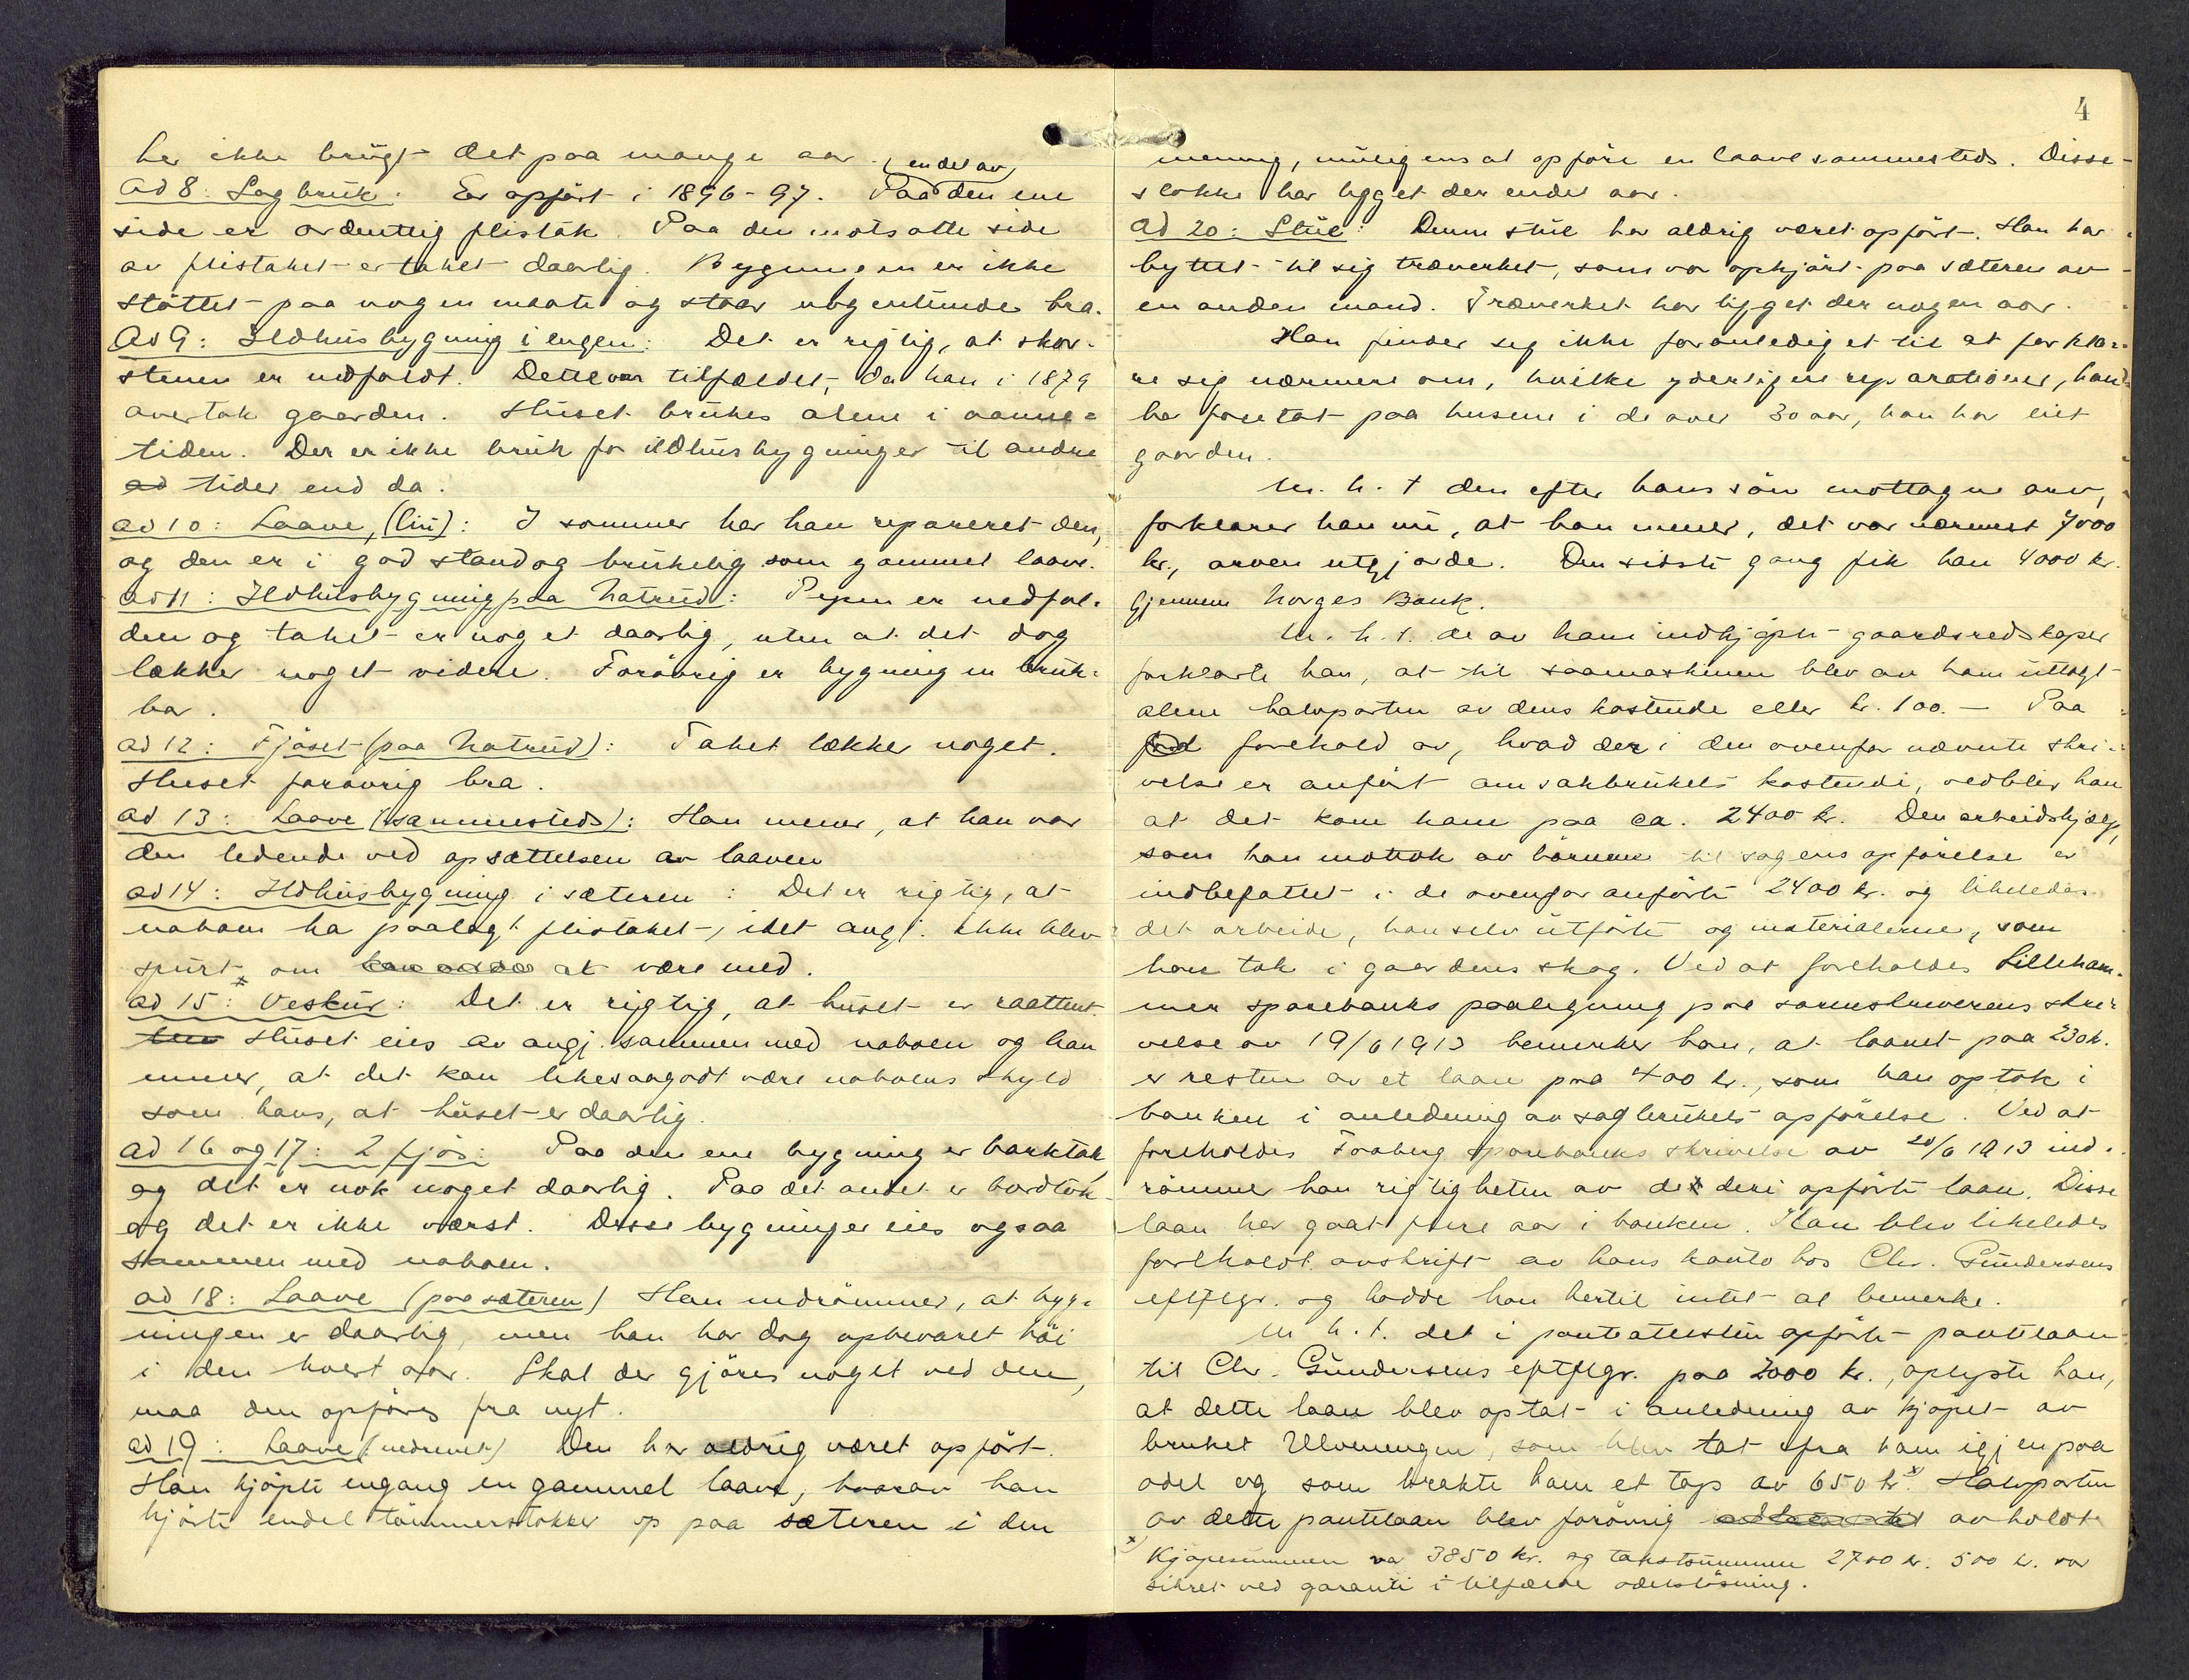 har ikke brugt det paa mange aar.
endel av
Ad 8: Sagbruk. Er opført i 1896-97. Paa den ene
side er ordentlig flistak. Paa den motsatte side
av flistaket er taket daarlig. Bygningen er ikke
støttet paa nogen maate og staar utelukkende bra.
Ad 9: Ildhusbygning i engen: Det er rigtig, at skor-
stenen er nedfaldt. Dette var tilfældet, da han i 1879
overtok gaarden. Huset brukes alene i aanne-
tiden. Der er ikke bruk for ildhusbygninger til andre
ad tider end da.
ad 10: Laave, (liu): I sommer har han reparert den,
og den er i god stand og brukelig som gammel laave.
ad 11: Ildhusbygning paa Natrud: Pipen er nedfal-
den og taket er noget daarlig, uten at det dog
lækker noget videre. Forøvrig er bygningen bruk-
bar.
ad 12: Fjøset (paa Natrud): Taket lækker noget.
Huset forøvrig bra.
ad 13: Laave (sammesteds): Han mener, at han var
den ledende ved opsættelsen av laaven
ad 14: Ildhusbygning i sæteren: Det er rigtig, at
naboen ha paalagt flistaket, idet angj. ikke blev
spurt om at være med.
ad 15: Veskur: Det er rigtig, at huset er raattent.
Huset eies av angj. sammen med naboen og han
mener, at det kan likesaagodt være naboens skyld
som hans, at huset er daarlig.
ad 16 og 17: 2 fjøs: Paa den ene bygning er barktak
og det er nok noget daarlig. Paa det andet er bordtak
og det er ikke værst. Disse bygninger eies ogsaa
sammen med naboen.
ad 18: Laave (paa sæteren) Han indrømmer, at byg-
ningen er daarlig, men han har dog opbevaret høi
i den hvert aar. Skal der gjøres noget ved den,
maa den opføres fra nyt.
ad 19: Laave (nedrevet) Den har aldrig været opført.
Han kjøpte engang en gammel laave, hvorav han
kjørte endel tømmerstokker op paa sæteren i den
4
mening, muligens at opføre en laave sammesteds. Disse
stokke har ligget der endel aar.
Ad 20: Stue: Denne stue har aldrig været opført. Han har
byttet til sig træverket, som var opkjørt paa sæteren av
en anden mand. Træverket har ligget der nogen aar.
Han finder sig ikke foranlediget til at forkla-
re sig nærmere om, hvilke yderligere reparationer, han
har foretat paa husene i de over 30 aar, han har eiet
gaarden.
M. h. t den efter hans søn mottagne arv,
forklarer han nu, at han mener, det var nærmest 7000
kr., arven utgjorde. Den sidste gang fik han 4000 kr.
gjennem Norges Bank.
M. h. t. de av ham indkjøpte gaardsredskaper
forklarte han, at til saamaskinen blev av ham utlagt
alene halvparten av dens kostende eller kr. 100.- Paa
forehold av, hvad der i den ovenfor nævnte skri-
velse er anført om sakbrukets kostende, vedblir han
at det kom ham paa ca. 2400 kr. Den arbeidshjælp,
som han mottok av børnene til sagens opførelse er
indbefattet i de ovenfor anførte 2400 kr. og likeledes
det arbeide, han selv utførte og materialerne, som
han tok i gaardens skog. Ved at foreholdes Lilleham-
mer sparebanks paategning paa sorenskriverens skri-
velse av 19/6 1913 bemerker han, at laanet paa 230 kr.
er resten av et laan paa 400 kr., som han optok i
banken i anledning av sagbrukets opførelse. Ved at
foreholdes Faaberg sparebanks skrivelse av 20/6 1913 ind-
rømmer han rigtigheten av de deri opførte laan. Disse
laan har gaat flere aar i banken. Han blev likeledes
foreholdt avskrift av hans konto hos Chr. Gundersens
eftflgr. og hadde han hertil intet at bemerke.
M. h. t. det i panteattesten opførte pantelaan
til Chr. Gundersens eftflgr. paa 2000 kr., oplyste han,
at dette laan blev optat i anledning av kjøpet av
bruket Ulvenengen, som blev tat fra ham igjen paa
odel og som brakte ham et tap av 650 kr. x) Halvparten
av dette pantelaan blev forøvrig avholdt
x) Kjøpesummen var 3850 kr. og takstsummen 2700 kr. 500 kr. var
sikret ved garanti i tilfælde odelsløsning.